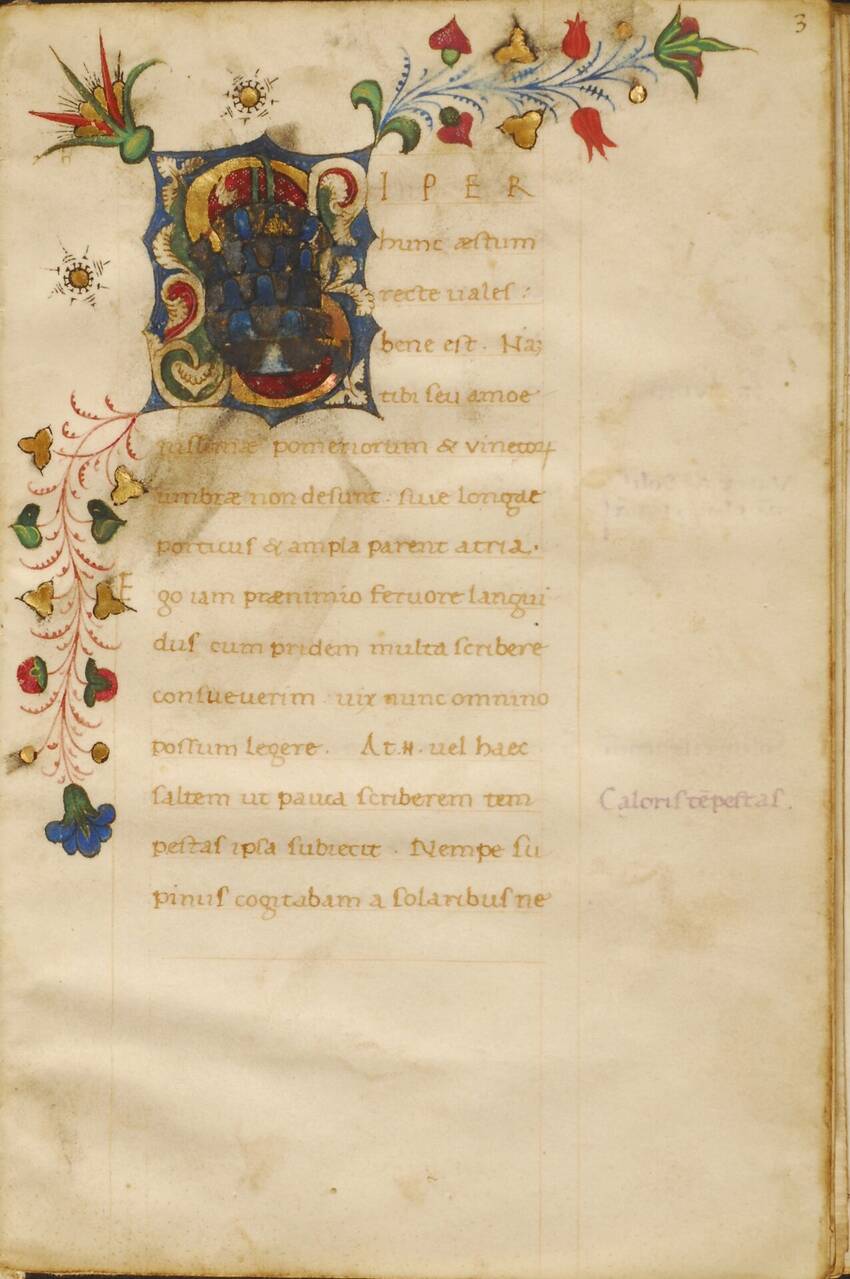 3
SI PER
hunc æstum
recte uales:
bene est. Naʒ
tibi seu amoe
nissimæ pomeriorum & vinetoꝝ
umbræ non desunt. siue longae
porticus & ampla parent atria.
Ego iam prænimio feruore langui
dus cum pridem multa scribere
consueuerim uix nunc omnino
possum legere. At .H. uel haec
saltem ut pauca scriberem tem
pestas ipsa subiecit. Nempe su
pinus cogitabam a solaribus ne
Caloris tēpestas.